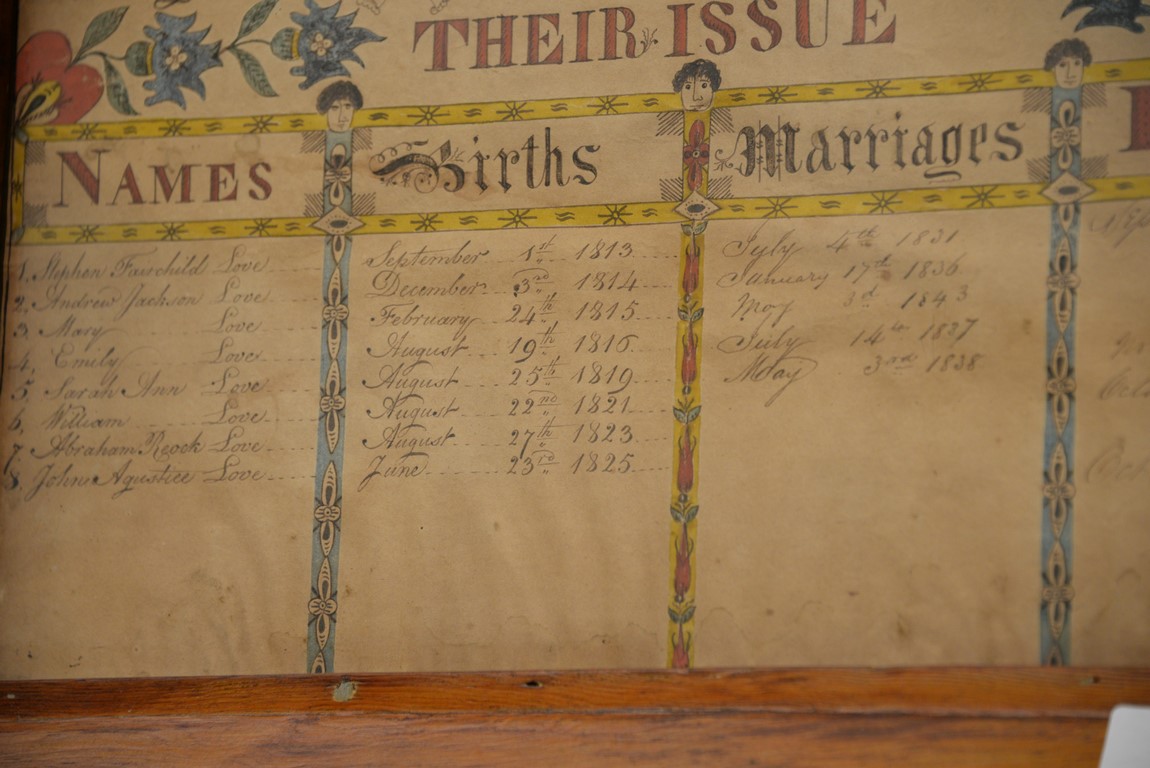 THEIR ISSUE
NAMES Births Marriages
1. Stephen Fairchild Love September 1st 1813 July 4th 1831
2. Andrew Jackson Love December 3rd 1814 January 17th 1836
3. Mary Love February 24th 1815 May 3d 1843
4. Emily Love August 19th 1816 July 14th 1837
5. Sarah Ann Love August 25th 1819 May 3rd 1838
6. William Love August 22nd 1821
7. Abraham Reock Love August 27th 1823
8. John Agustice Love June 23rd 1825